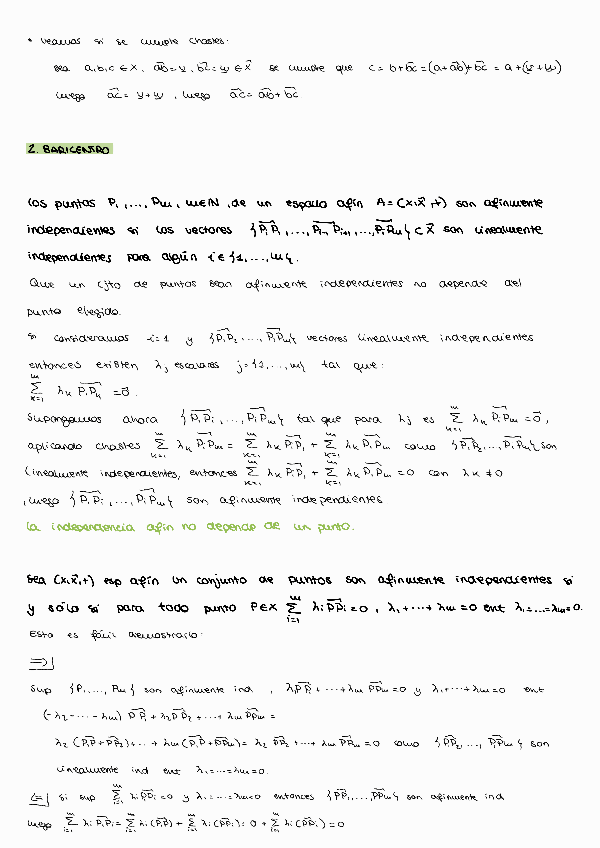 * Veamos si se cumple chasles:
sea a,b,c ∈ X, ab⃗=v, bc⃗=w ∈ X⃗ se cumple que c = b+bc⃗ =(a+ab⃗)+bc⃗ = a+(v+w)
luego ac⃗ = v+w, luego ac⃗ = ab⃗+bc⃗.
2. BARICENTRO
Los puntos P₁,...,Pₘ, m∈ℕ, de un espacio afín A=(X,X⃗,+) son afinmente
independientes si los vectores {PᵢP₁⃗,...,Pᵢ₋₁⃗,Pᵢ₊₁⃗,...,PᵢPₘ⃗} ⊂ X⃗ son linealmente
independientes para algún i∈{1,...,m}.
Que un cjto de puntos sean afinmente independientes no depende del
punto elegido.
Si consideramos i=1 y {P₁P₂⃗,...,P₁Pₘ⃗} vectores linealmente independientes
entonces existen λⱼ escalares j={2,...,m} tal que:
∑ₖ₌₁ᵐ λₖ P₁Pₖ⃗ = 0⃗.
Supongamos ahora {PᵢP₁⃗,...,PᵢPₘ⃗} tal que para λj es ∑ₖ₌₁ᵐ λₖ PᵢPₘ⃗ = 0⃗,
aplicando chasles ∑ₖ₌₁ᵐ λₖ PᵢPₘ⃗ = ∑ₖ₌₁ᵐ λₖ PᵢP₁⃗ + ∑ₖ₌₁ᵐ λₖ P₁Pₘ⃗ como {P₁P₂⃗,...,P₁Pₘ⃗} son
linealmente independientes, entonces ∑ₖ₌₁ᵐ λₖ PᵢP₁⃗ + ∑ₖ₌₁ᵐ λₖ P₁Pₘ⃗ = 0 con λₖ ≠ 0
, luego {PᵢP₁⃗,...,PᵢPₘ⃗} son afinmente independientes
La independencia afín no depende de un punto.
Sea (X,X⃗,+) esp afín un conjunto de puntos son afinmente independientes si
y sólo si para todo punto P∈X ∑ᵢ₌₁ᵐ λᵢ PPᵢ⃗ = 0, λ₁+...+λₘ = 0 ent λ₁=...=λₘ=0.
Esto es fácil demostrarlo:
⇒|
Sup {P₁,...,Pₘ} son afinmente ind, λ₁PP₁⃗+...+λₘ PPₘ⃗=0 y λ₁+...+λₘ=0 ent
(-λ₂-...-λₘ) PP₁⃗ + λ₂PP₂⃗+...+λₘ PPₘ⃗ =
λ₂ (P₁P⃗+PP₂⃗)+...+λₘ(P₁P⃗+PPₘ⃗)= λ₂ P₁P₂⃗+...+λₘ P₁Pₘ⃗=0 como {P₁P₂⃗,...,P₁Pₘ⃗} son
linealmente ind ent λ₁=...=λₘ=0.
⇐| Si sup ∑ᵢ₌₁ᵐ λᵢ PPᵢ⃗=0 y λ₁=...=λₘ=0 entonces {PP₁⃗,...,PPₘ⃗} son afinmente ind
luego ∑ᵢ₌₁ᵐ λᵢ P₁Pᵢ⃗ = ∑ᵢ₌₁ᵐ λᵢ (P₁P⃗) + ∑ᵢ₌₁ᵐ λᵢ (PPᵢ⃗) = 0 + ∑ᵢ₌₁ᵐ λᵢ (PPᵢ⃗) = 0